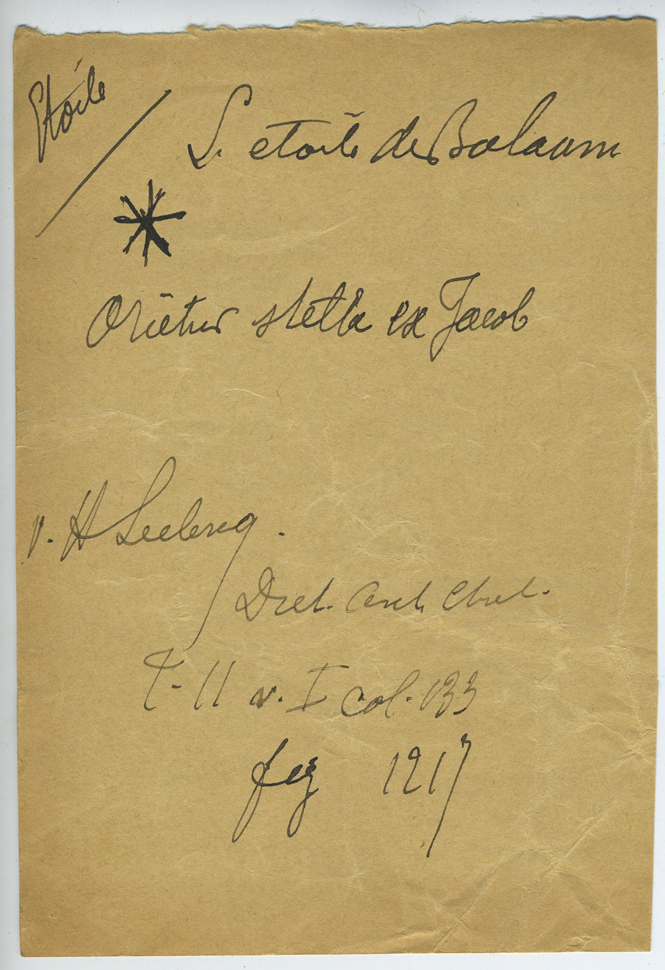 Etoile
L'etoile de Balaam
Orietur stella ex Jacob
v. H Leclercq.
Dict. arch. chret.
T. II v. I col. 133
fig 1217